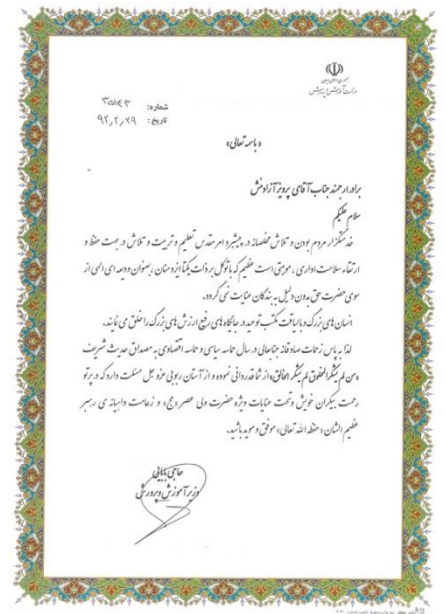 جمهوری اسلامی ایران
وزارت آموزش و پرورش
شماره:
تاریخ: ۹۲٫۲٫۲۹
« باسمه تعالی»
برادر ارجمند جناب آقای پرویز آزادمنش
سلام علیکم
خدمتگزار مردم بودن و تلاش مخلصانه در پیشبرد امر مقدس تعلیم و تربیت و تلاش در جهت حفظ و
ارتقاء سلامت اداری ، موهبتی است عظیم که با توکل بر ذات یکتا ایزد منان ، بعنوان ودیعه ای الهی از
سوی حضرت حق بدون دلیل به بندگان عنایت نمی گردد.
انسان های بزرگ و با لیاقت مکتب توحید در جایگاه های رفیع ارزش های بزرگ را خلق می نمایند.
لذا به پاس زحمات صادقانه جنابعالی در سال حماسه سیاسی و حماسه اقتصادی به مصداق حدیث شریف
«من لم یشکر المخلوق لم یشکر الخالق» از شما قدردانی نموده و از آستان ربوبی عزوجل مسئلت دارد که در پرتو
رحمت بیکران خویش و تحت عنایات ویژه حضرت ولی عصر «عج» و زعامت داهیانه ی رهبر
عظیم الشان «حفظه الله تعالی» موفق و موید باشید.
حاجی بابایی
وزیر آموزش و پرورش